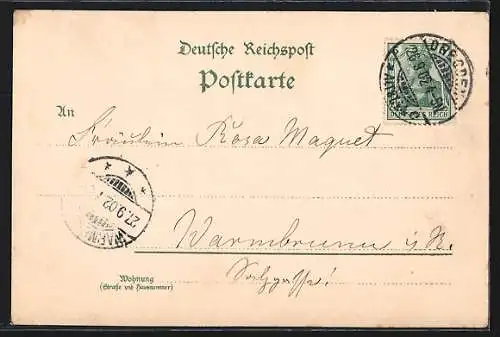 Deutsche Reichspost
Postkarte
An
Fräulein Rosa Magnet
Warmbrunn i. S.
Wohnung
(Straße und Hausnummer)
26.9.02
DEUTSCHES REICH
27.9.02